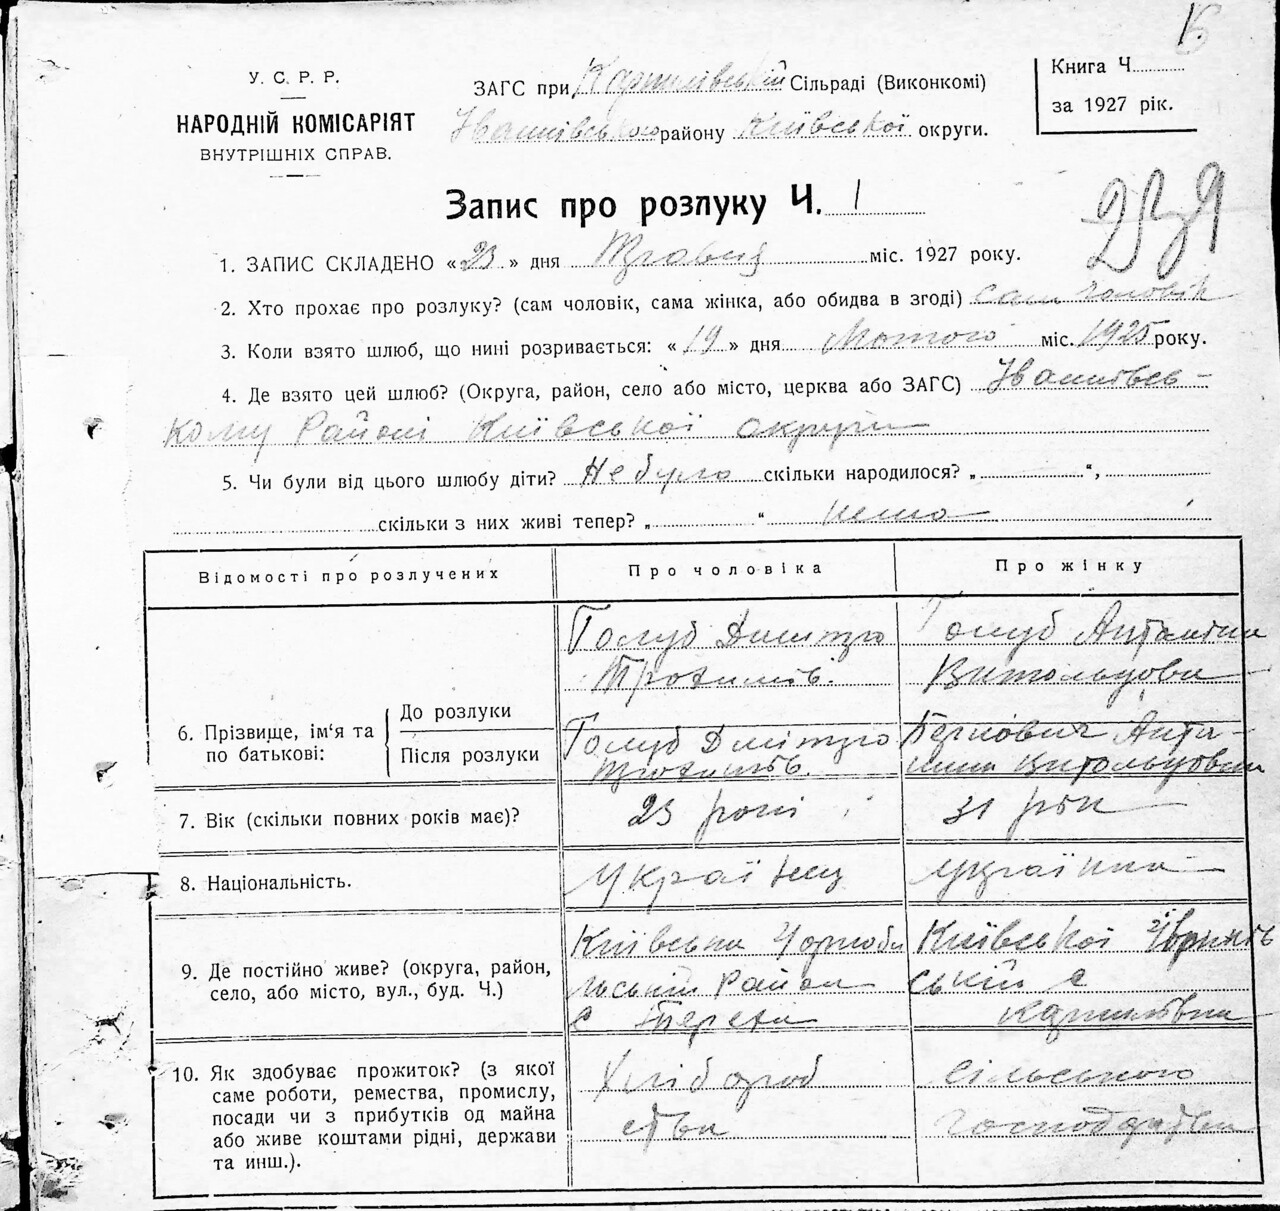 15
У. С. Р. Р.
НАРОДНІЙ КОМІСАРІЯТ
ВНУТРІШНІХ СПРАВ.
ЗАГС при Карпилівській Сільраді (Виконкомі)
району Київської округи.
Книга Ч.
за 1927 рік.
Запис про розлуку Ч. 1
1. ЗАПИС СКЛАДЕНО « 23 » дня Травня міс. 1927 року.
2. Хто прохає про розлуку? (сам чоловік, сама жінка, або обидва в згоді) сам чоловік
3. Коли взято шлюб, що нині розривається: « 19 » дня Лютого міс. 1925 року.
4. Де взято цей шлюб? (Округа, район, село або місто, церква або ЗАГС) Іванківсь-
кому Районі Київської округи
5. Чи були від цього шлюбу діти? Не було скільки народилося? „ “,
скільки з них живі тепер? „ “ нема
Відомості про розлучених
Про чоловіка
Про жінку
6. Прізвище, ім‘я та по батькові:
До розлуки
Голуб Дмітро
Трохимів.
Голуб Антаніна
Витольдовна
Після розлуки
Голуб Дмітро
Трохимів.
Анта-
нина Витольдовна
7. Вік (скільки повних років має)?
23 роки
31 рік
8. Національність.
Українец
Українка
9. Де постійно живе? (округа, район,
село, або місто, вул., буд. Ч.)
Київська Чорноби
льський Район
с Терехи
Київської
ський с
Карпилівка
10. Як здобуває прожиток? (з якої
саме роботи, ремества, промислу,
посади чи з прибутків од майна
або живе коштами рідні, держави
та инш.).
Хлібороб
ства
Сільського
Господарства